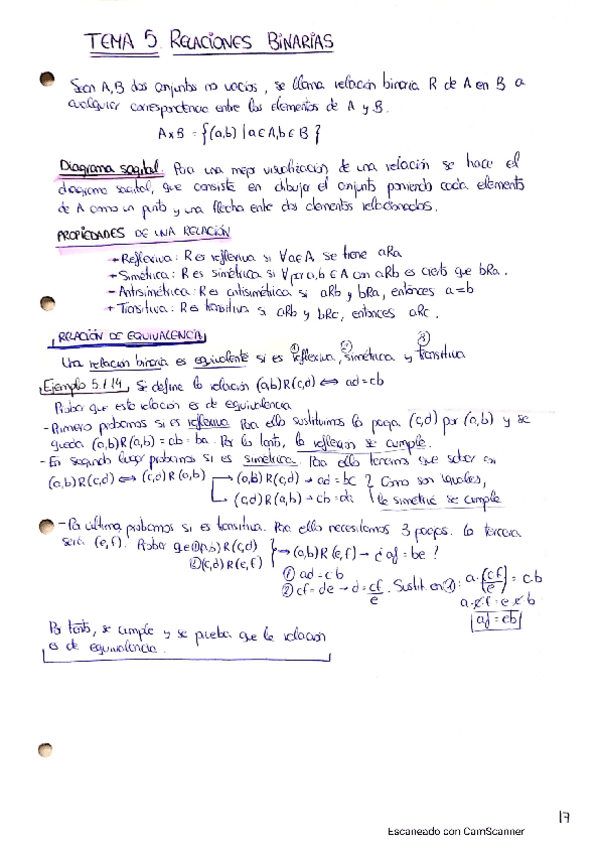 TEMA 5. RELACIONES BINARIAS
Sean A,B dos conjuntos no vacíos, se llama relación binaria R de A en B a
cualquier correspondencia entre los elementos de A y B.
A×B = {(a,b) | a∈A, b∈B}
Diagrama sagital. Para una mejor visualización de una relación se hace el
diagrama sagital, que consiste en dibujar el conjunto poniendo cada elemento
de A como un punto y una flecha entre dos elementos relacionados.
PROPIEDADES DE UNA RELACIÓN
→ Reflexiva: R es reflexiva si ∀a∈A se tiene aRa
→ Simétrica: R es simétrica si ∀ par a,b ∈ A con aRb es cierto que bRa.
- Antisimétrica: R es antisimétrica si aRb y bRa, entonces a=b
+ Transitiva: R es transitiva si aRb y bRc, entonces aRc.
RELACIÓN DE EQUIVALENCIA
① ② ③
Una relación binaria es equivalente si es reflexiva, simétrica y transitiva
Ejemplo 5.1.14. Se define la relación (a,b)R(c,d) ⟺ ad=cb
Probar que esta relación es de equivalencia
- Primero probamos si es reflexiva. Para ello sustituimos la pareja (c,d) por (a,b) y se
queda (a,b)R(a,b) = ab = ba. Por lo tanto, la reflexión se cumple.
- En segundo lugar probamos si es simétrica. Para ello tenemos que saber en
(a,b)R(c,d) ⟺ (c,d)R(a,b) → (a,b)R(c,d) → ad = bc } Como son iguales,
→ (c,d)R(a,b) → cb = da } la simetría se cumple
- Por último probamos si es transitiva. Para ello necesitamos 3 parejas. La tercera
será (e,f). Probar que ①(a,b)R(c,d) } → (a,b)R(e,f) → ¿af = be?
②(c,d)R(e,f)
① ad = cb
② cf = de → d = cf/e. Sustit. en ①: a·(cf/e) = cb
a·c·f = e·c·b
af = eb
Por tanto, se cumple y se prueba que la relación
es de equivalencia.
17
Escaneado con CamScanner